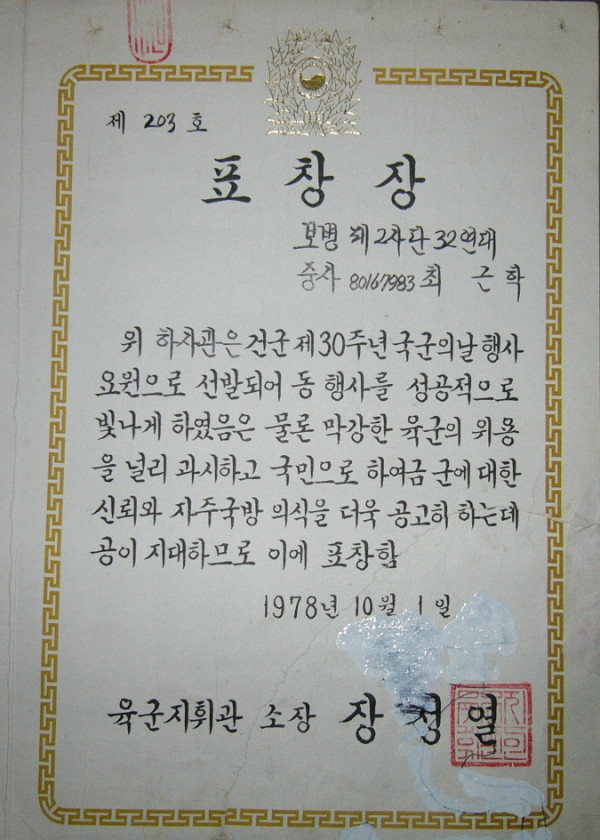 제 203 호
표 창 장
보병 제2사단 32연대
중사 80167983 최 근 학
위 하사관은 건군 제30주년 국군의날 행사
요원으로 선발되어 동 행사를 성공적으로
빛나게 하였음은 물론 막강한 육군의 위용
을 널리 과시하고 국민으로 하여금 군에 대한
신뢰와 자주국방 의식을 더욱 공고히 하는데
공이 지대하므로 이에 표창함
1978년 10월 1일
육군지휘관 소장 장 정 열